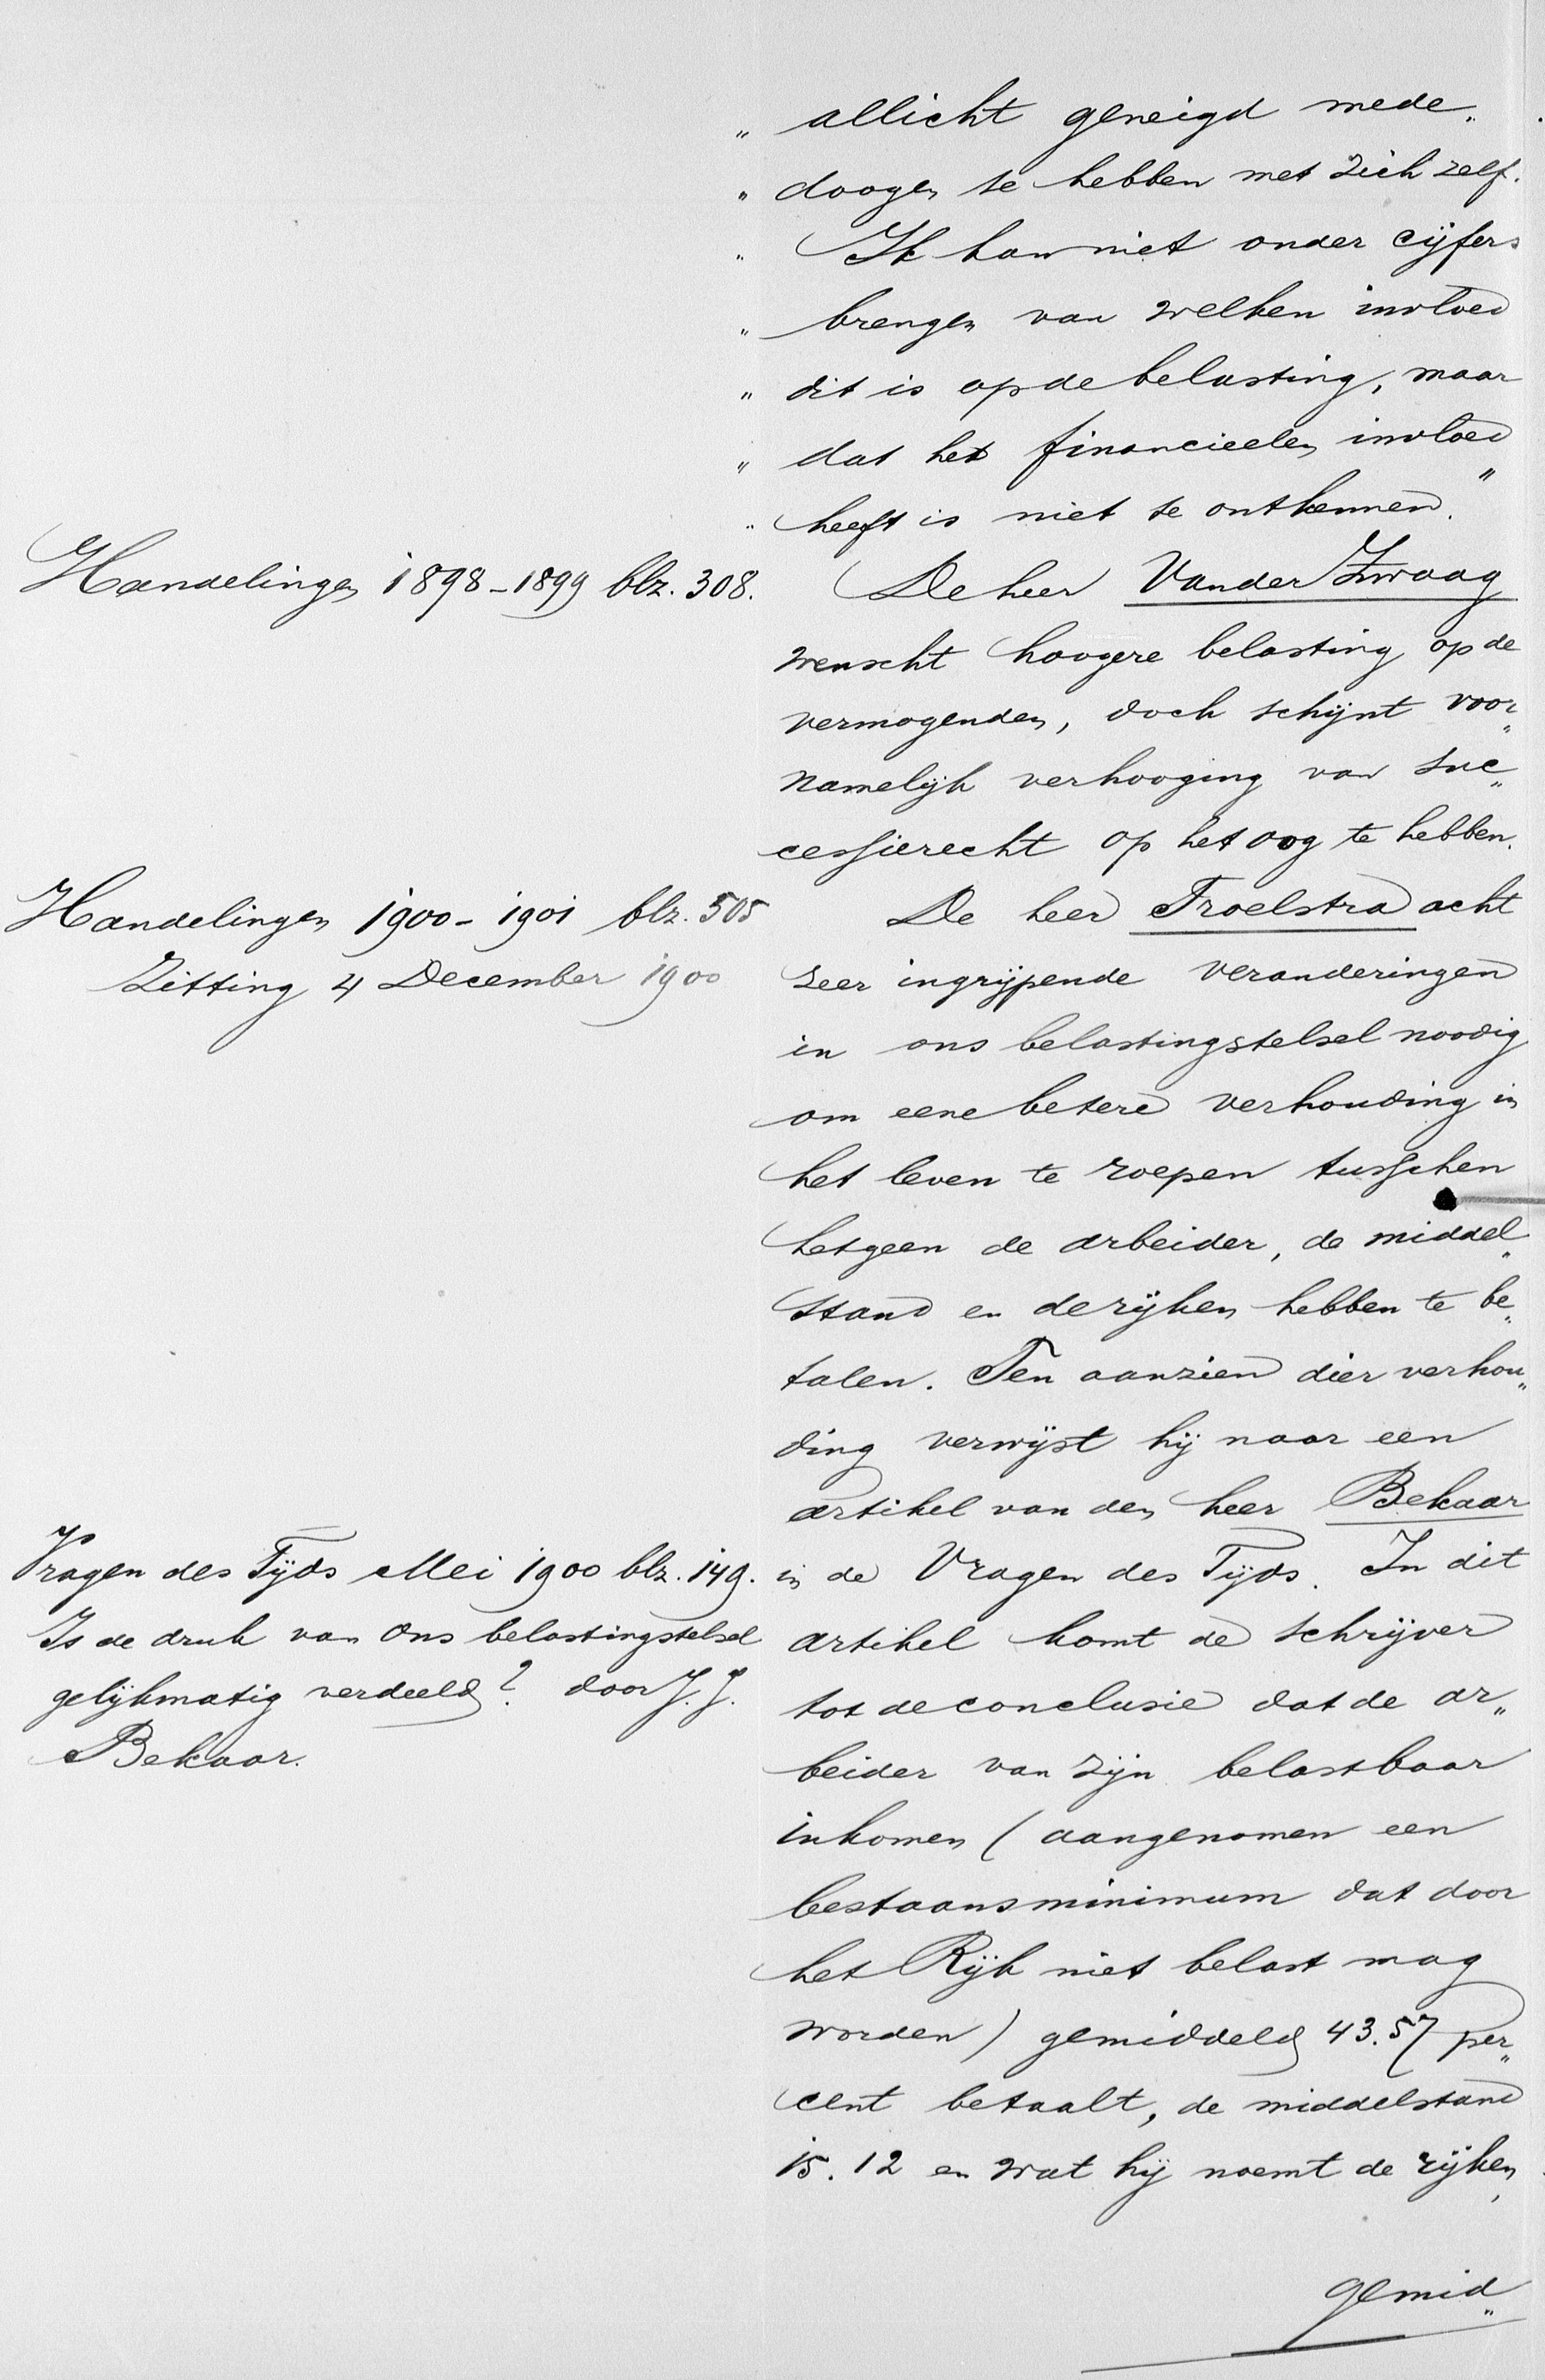 „ allicht geneigd mede„
„ doogen te hebben met zich zelf.
„ Ik kan niet onder cijfers
„ brengen van welken invloed
„ dit is op de belasting, maar
„ dat het financieelen invloed
„ heeft is niet te ontkennen."
Handelingen 1898-1899 blz. 308.
De heer Van der Zwaag
wenscht hoogere belasting op de
vermogenden, doch schijnt voor„
namelijk verhooging van suc„
cessierecht op het oog te hebben.
Handelingen 1900-1901 blz. 505
Zitting 4 December 1900
De heer Troelstra acht
zeer ingrijpende veranderingen
in ons belastingstelsel noodig
om eene betere verhouding in
het leven te roepen tusschen
hetgeen de arbeider, de middel„
stand en de rijken hebben te be„
talen. Ten aanzien dier verhou„
ding verwijst hij naar een
artikel van den heer Bekaar
Vragen des Tijds Mei 1900 blz. 149.
Is de druk van ons belastingstelsel
gelijkmatig verdeeld? door J. J.
Bekaar.
in de Vragen des Tijds. In dit
artikel komt de schrijver
tot de conclusie dat de ar„
beider van zijn belastbaar
inkomen (aangenomen een
bestaansminimum dat door
het Rijk niet belast mag
worden) gemiddeld 43.57 per„
cent betaalt, de middelstand
15.12 en wat hij noemt de rijken,
gemid„